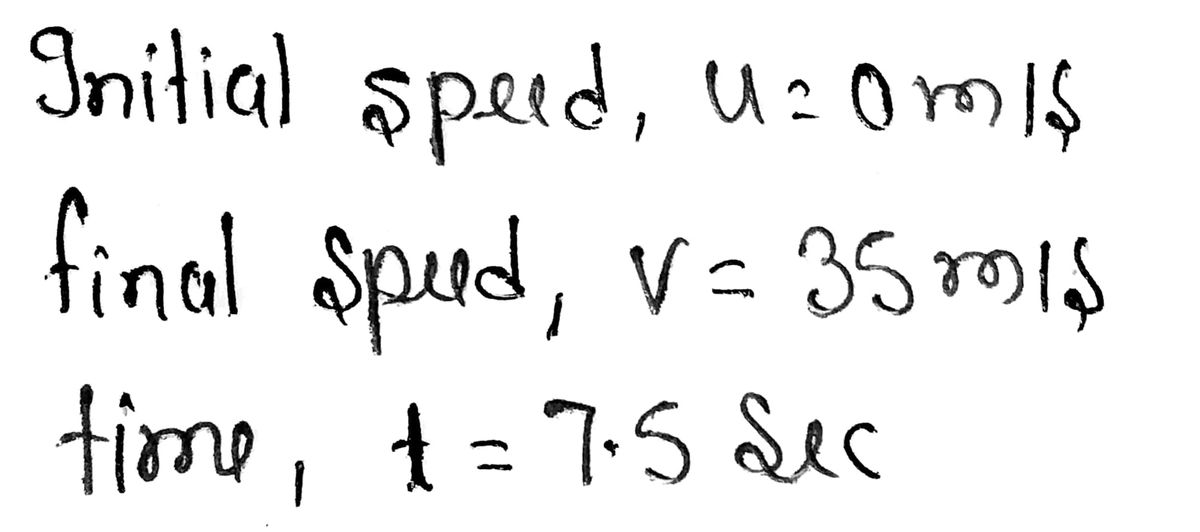 Initial speed, u = 0 m/s
final speed, v = 35 m/s
time, t = 7.5 Sec